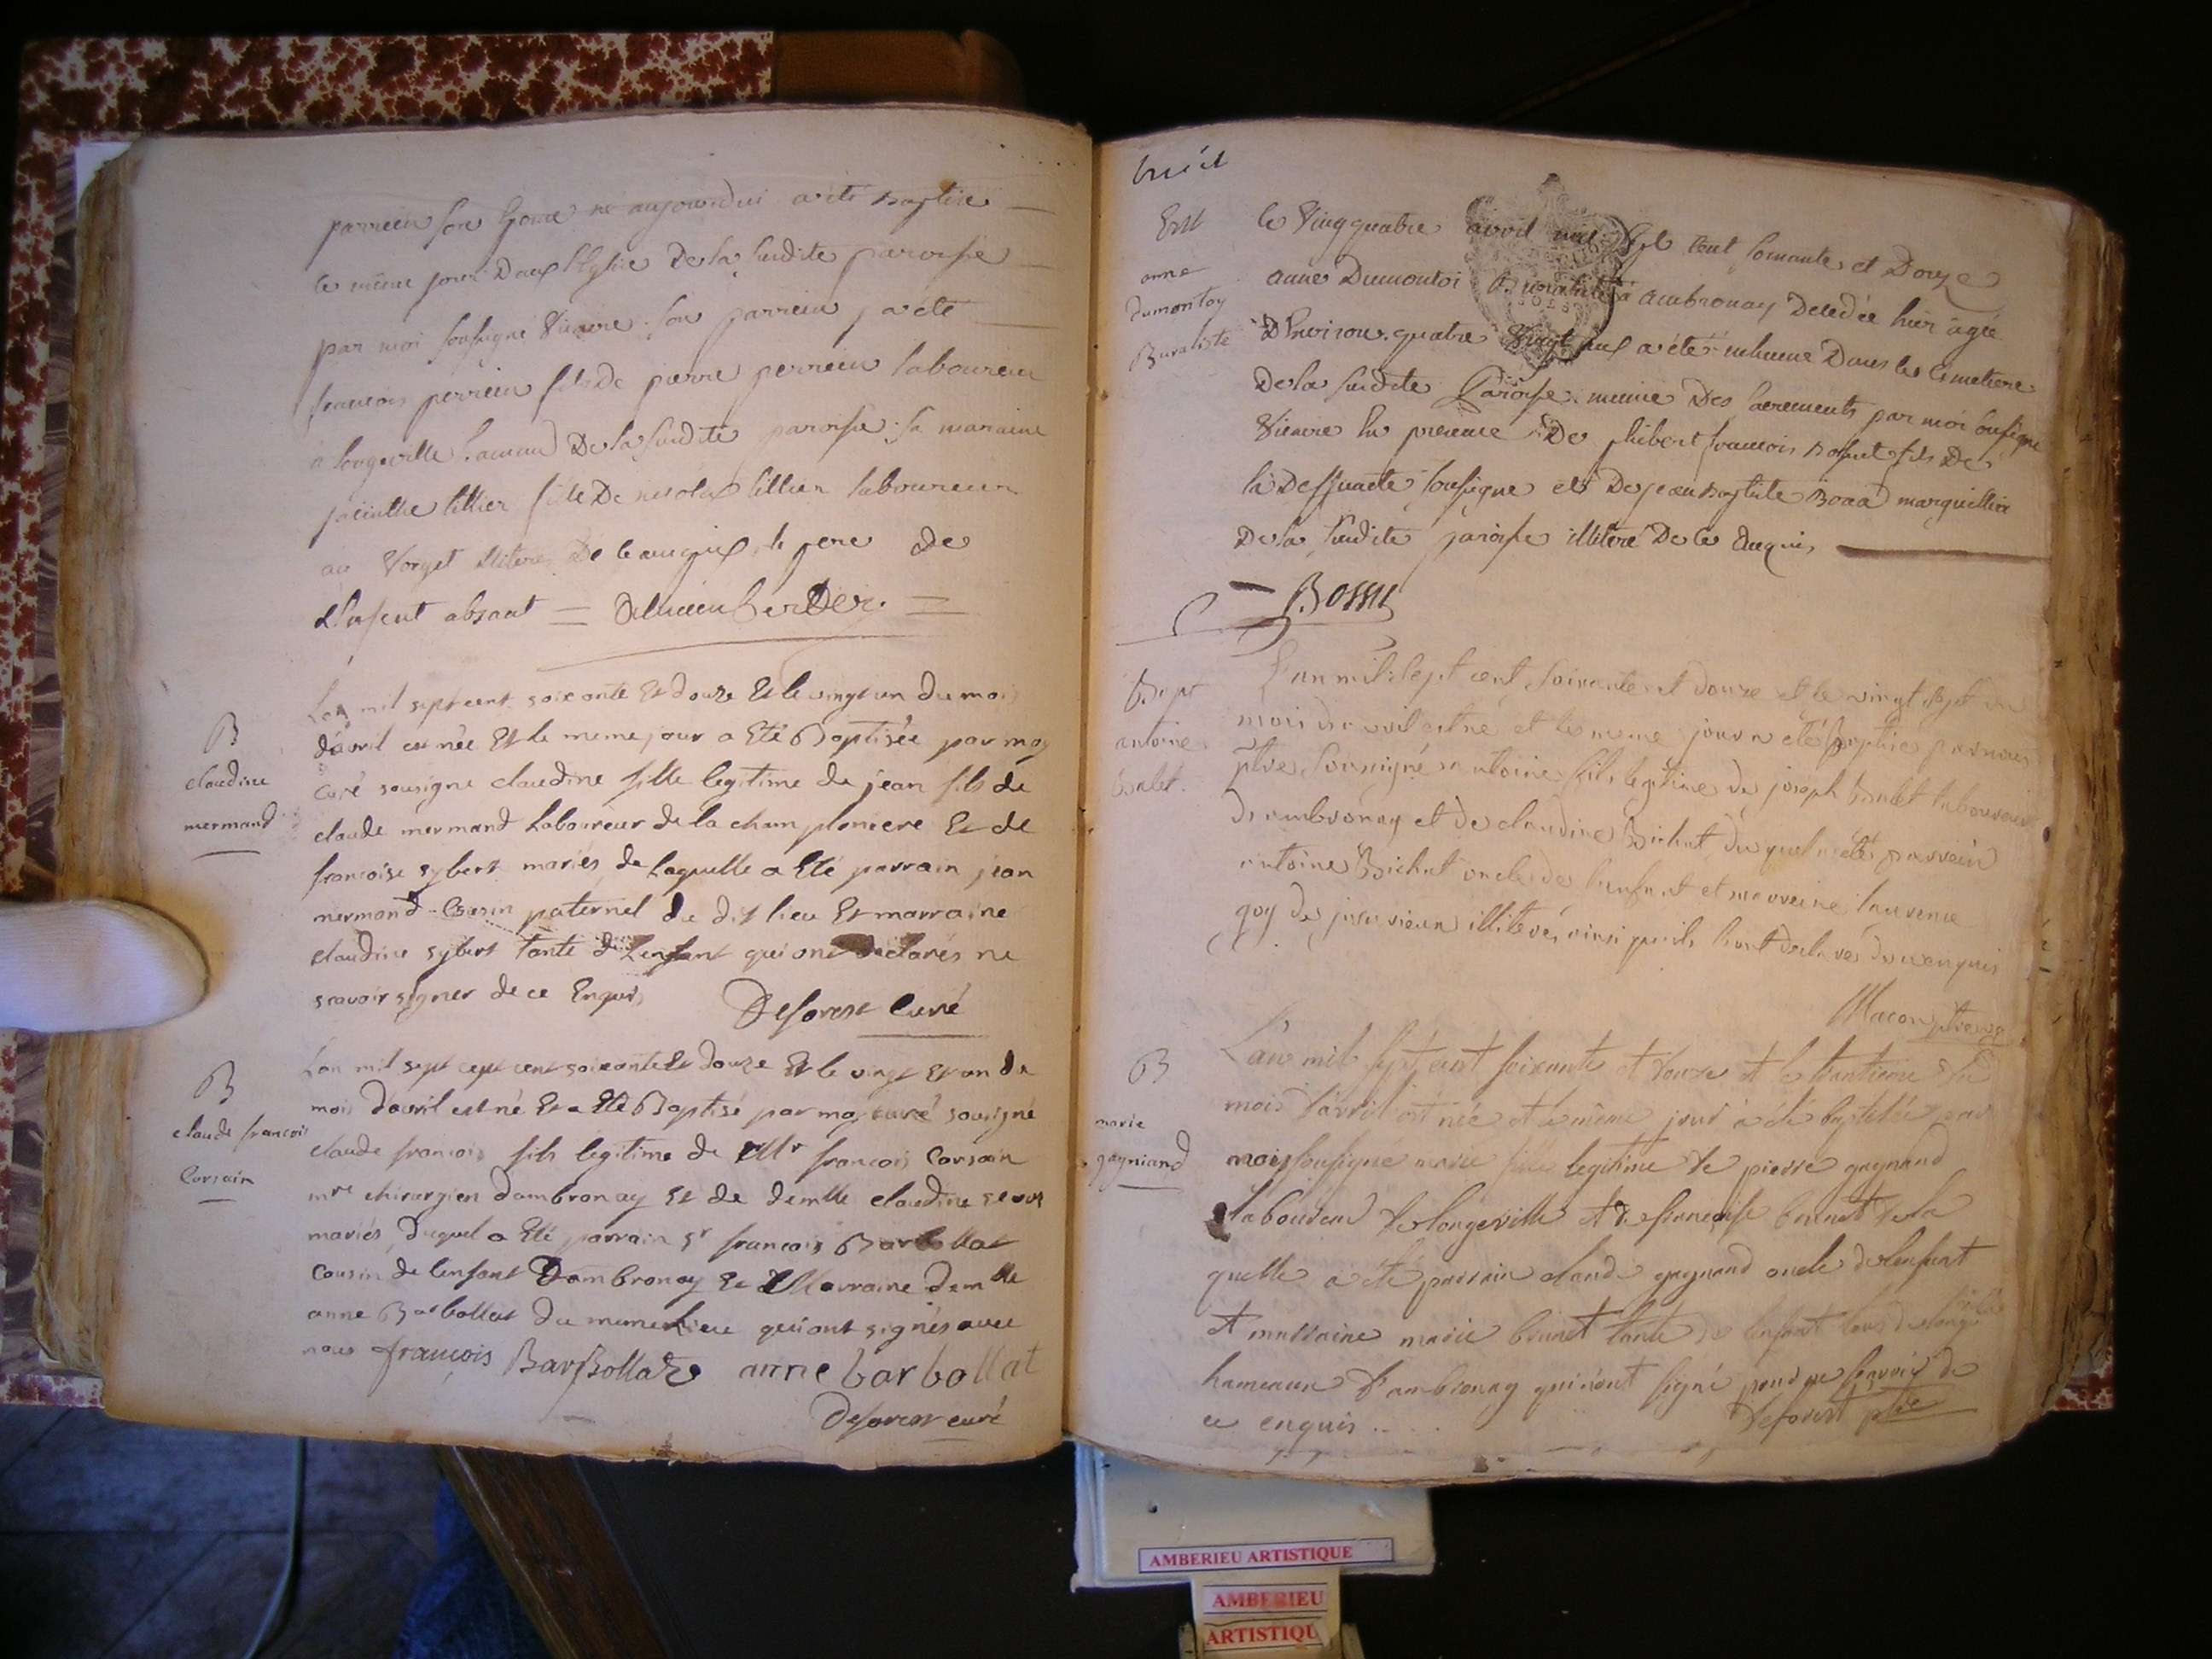 a été Baptisé
le même jour Dans l'Eglise De la susdite paroisse
par moi soussigné Vicaire son parrein a eté
francois perrein fils de pierre perrein laboureur
à longeville De la susdite paroisse sa maraine
fille De nicolas tillier laboureur
au Vorget De le pere de
L'enfent absant =
B
claudine
mermand
Lan mil sept cent soixante Et douze Et le vingt un du mois
d'avril est née Et le meme jour a Eté Baptisée par moy
curé sousigne claudine fille legitime de jean fils de
claude mermand Laboureur de la champloniere Et de
francoise sybert mariés de Laquelle a Eté parrain jean
mermand Cousin paternel du dit lieu Et marraine
claudine sybert tante de Lenfant qui ont déclarés ne
scavoir signer de ce Enquis
Deforest Curé
B
claude francois
Corsain
Lan mil sept cept cent soixante Et douze Et le vingt et un de
mois d'avril est né Et a Eté Baptisé par moy curé sousigné
claude francois fils legitime de Mr francois Corsain
mre chirurgien dambronay Et de demlle claudine
mariés, duquel a Eté parrain Sr francois Barbollat
Cousin de lenfant Dambronay Et Marraine demlle
anne Barbollat du meme Lieu qui ont signés avec
nous françois BarBollat anne barbollat
Deforest curé
Ent
anne
dumontoy
Buraliste
le Vingquatre avril mil Sept Cent Soixante et Douze
anne Dumontoi Buraliste à ambronay Decedée hier agée
D'Environ quatre Vingt ans a été inhumé Dans le Cimetiere
De la susdite Paroisse munie Des sacrements par moi sousigne
Vicaire En presence De philibert francois Bossut fils De
la Deffuncte sousigne et De jean Baptiste marguillier
De la susdite paroisse illiteré De ce Enquis
Bossu
Bapt
antoine
L'an mil sept cent soixante et douze et le vingt sept du
mois d'avril est né et le meme jour a eté baptisé par nous
ptre soussigné antoine fils legitime de joseph laboureur
d'ambronay et de claudine Bichat duquel a eté parrein
antoine Bichat oncle de l'enfant et marreine laurence
goy de jujurieux illiterés ainsi qu'ils l'ont declarés de ce enquis
Macon ptre
B
marie
gagniand
L'an mil sept cent soixante et douze et le trantieme du
mois d'avril est née et le même jour a été baptisée par
moi soussigne marie fille legitime de pierre gagnand
laboureur de longeville et de françoise brunet de la
quelle a été parrain claude gagnand oncle de lenfant
et marraine marie brunet tante de lenfant
hameaux d'ambronay qui n'ont signé pour ne savoir de
ce enquis.....
Deforest ptre
AMBERIEU ARTISTIQUE
AMBERIEU
ARTISTIQU